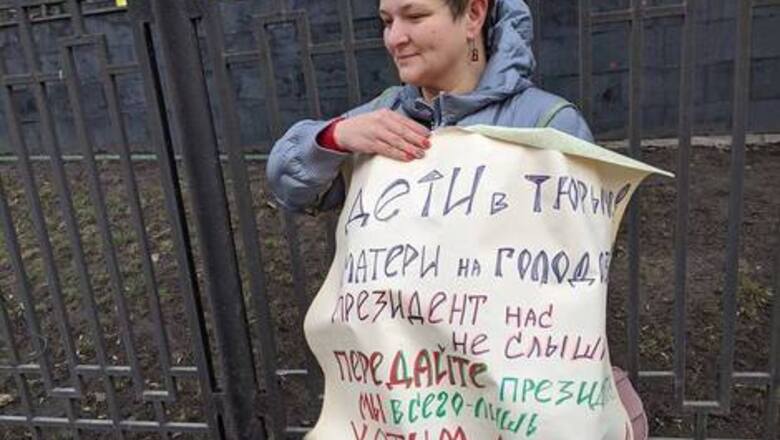 ДЕТИ В ТЮРЬМЕ
МАТЕРИ НА ГОЛОД
ПРЕЗИДЕНТ НАС
НЕ СЛЫШ
ПЕРЕДАЙТЕ ПРЕЗИД
МЫ ВСЕГО-ЛИШЬ
ХОТИМ